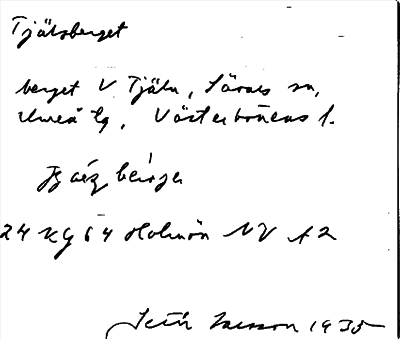 Tjälsberget
berget V Tjäln, Sävars sn,
Umeå tg, Västerbottens l.
24 Kg 64 Holmön NV A2
Seth Jansson 1935